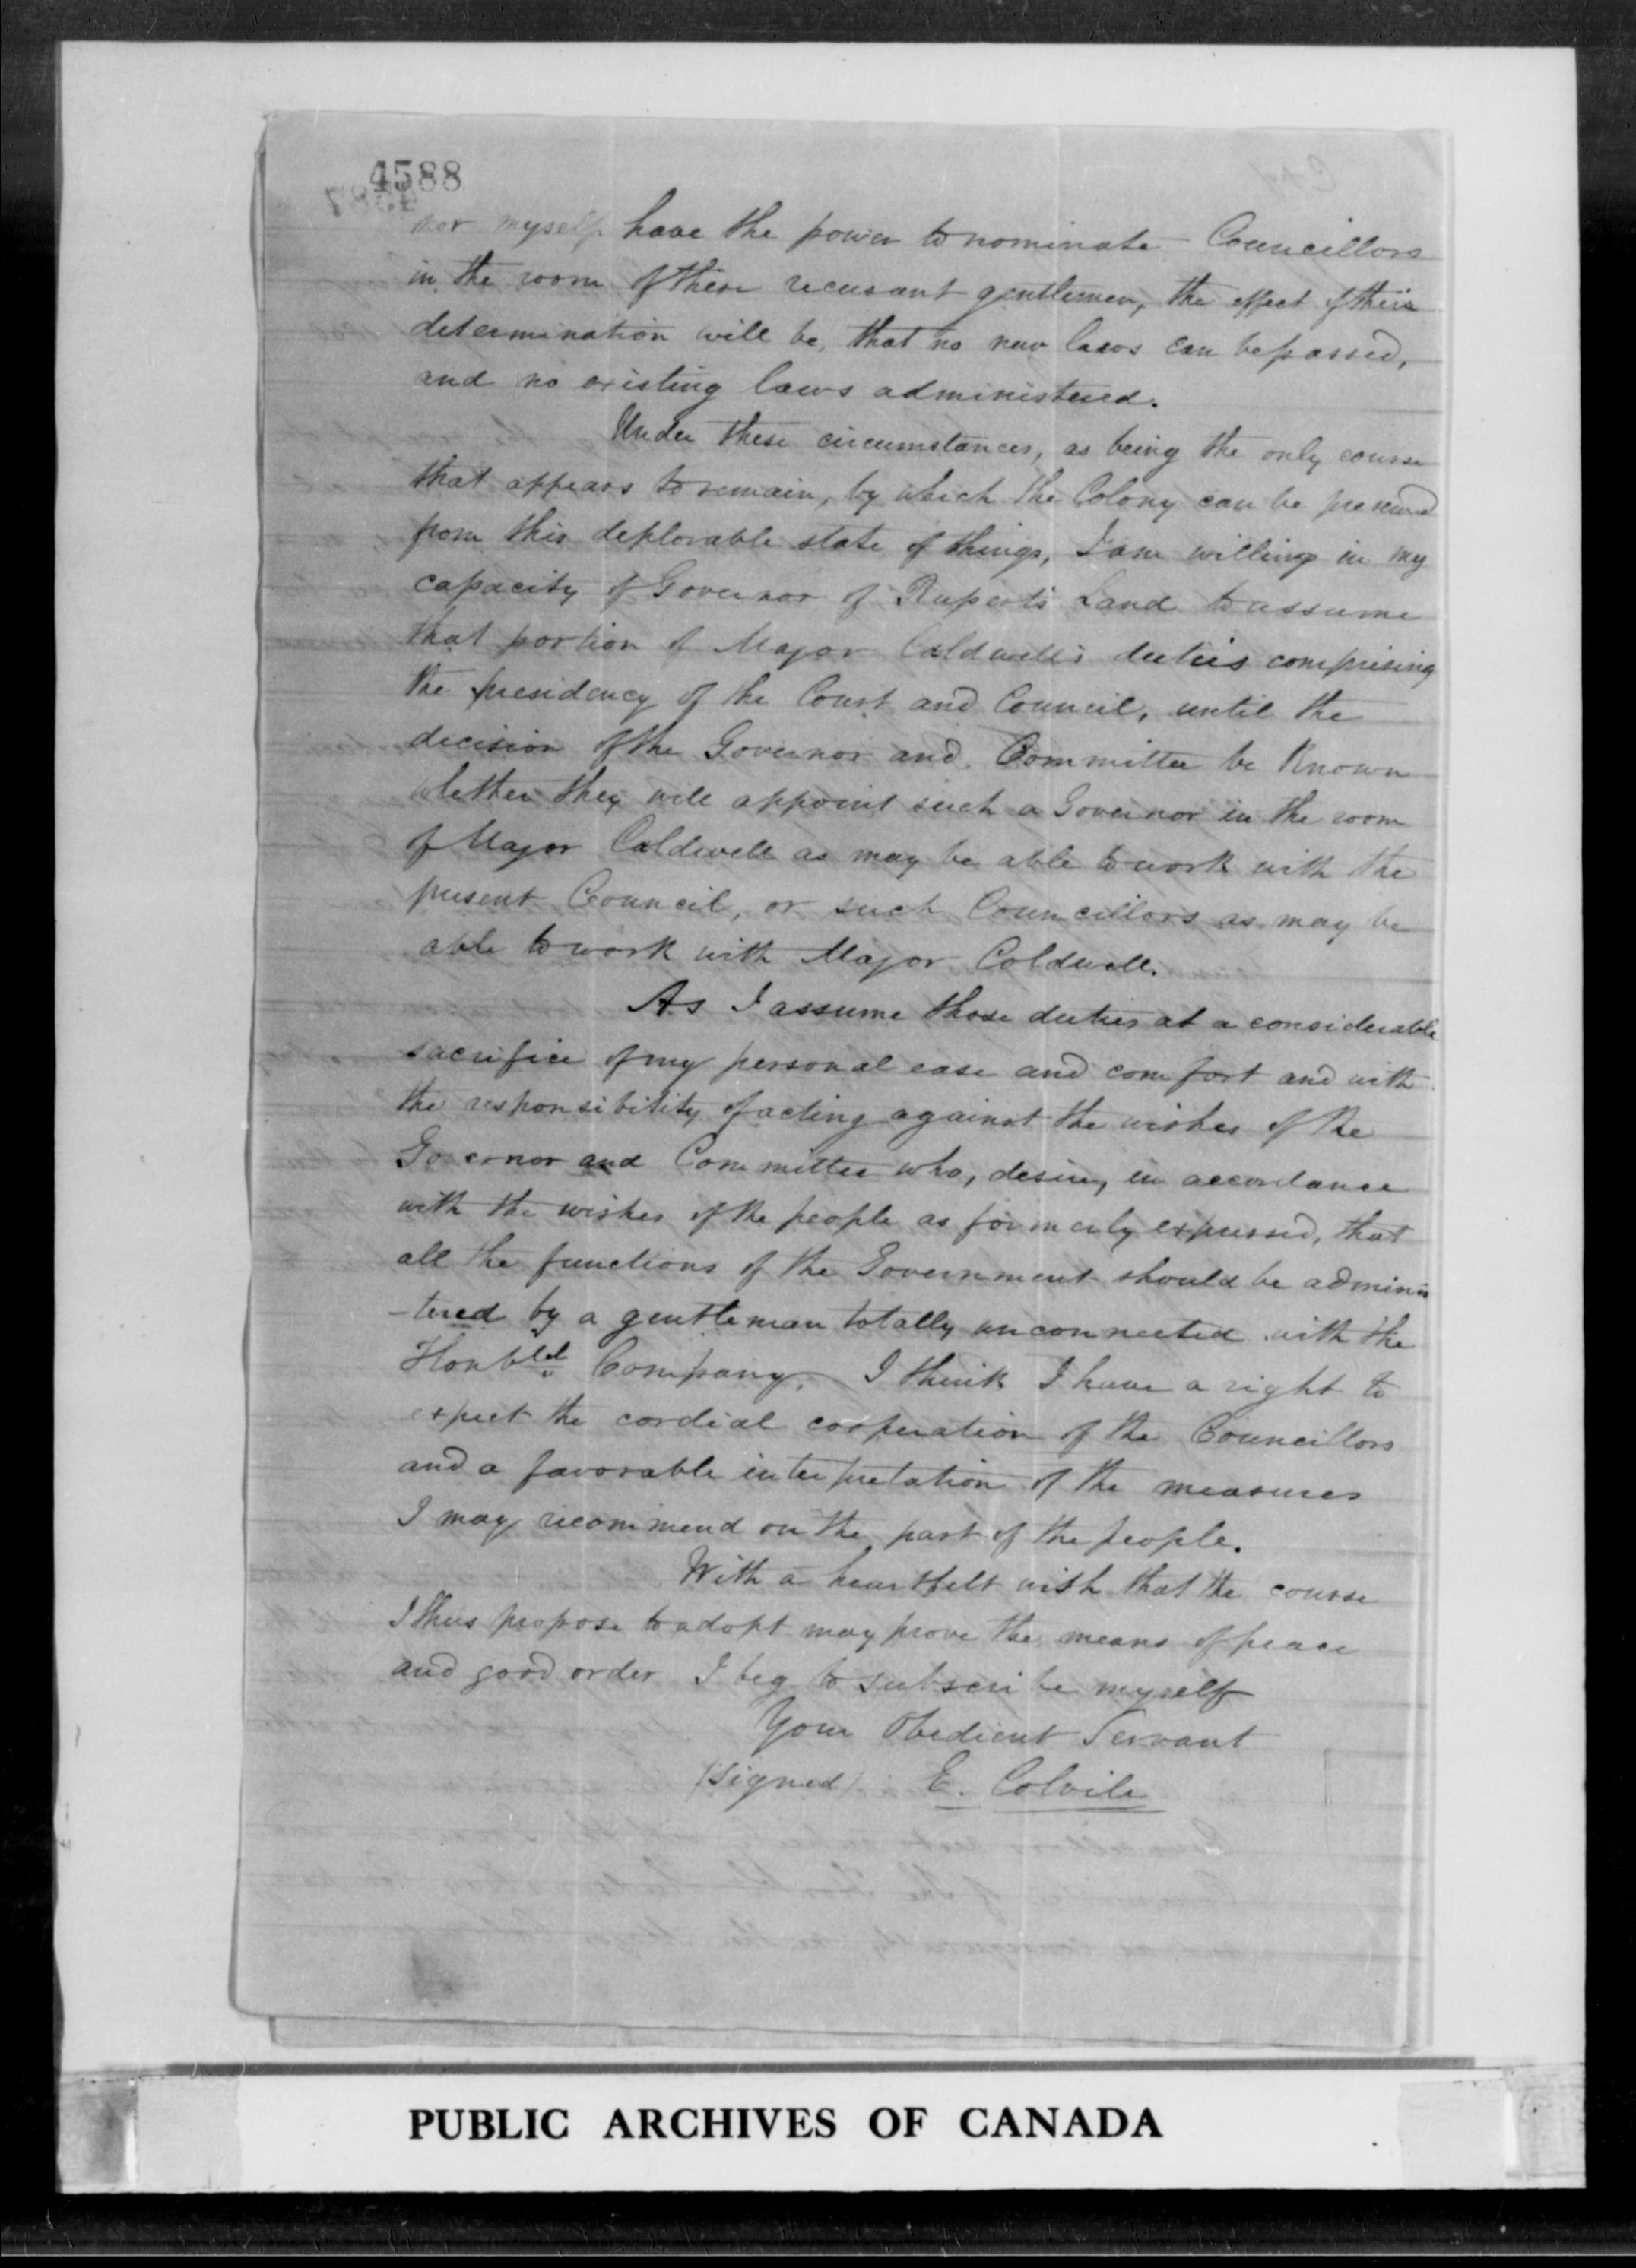 4588
nor myself have the power to nominate Councillors
in the room of these recusant gentlemen, the effect of their
determination will be, that no new laws can be passed,
and no existing laws administered.
Under these circumstances, as being the only course
that appears to remain, by which the Colony can be preserved
from this deplorable state of things, I am willing in my
capacity of Governor of Ruperts Land to assume
that portion of Major Caldwell's duties comprising
the presidency of the Court and Council, until the
decision of the Governor and Committee be Known
whether they will appoint such a Governor in the room
of Major Caldwell as may be able to work with the
present Council, or such Councillors as may be
able to work with Major Coldwell.
As I assume those duties at a considerable
sacrifice of my personal ease and comfort and with
the responsibility of acting against the wishes of the
Governor and Committee who, desire, in accordance
with the wishes of the people as formerly expressed, that
all the functions of the Government should be adminis
-tered by a gentleman totally unconnected with the
Honbled Company, I think I have a right to
expect the cordial cooperation of the Councillors
and a favorable interpretation of the measures
I may recommend on the part of the people.
With a heartfelt wish that the course
I thus propose to adopt may prove the means of peace
and good order I beg to subscribe myself
Your Obedient Servant
(signed) E. Colvile
PUBLIC ARCHIVES OF CANADA